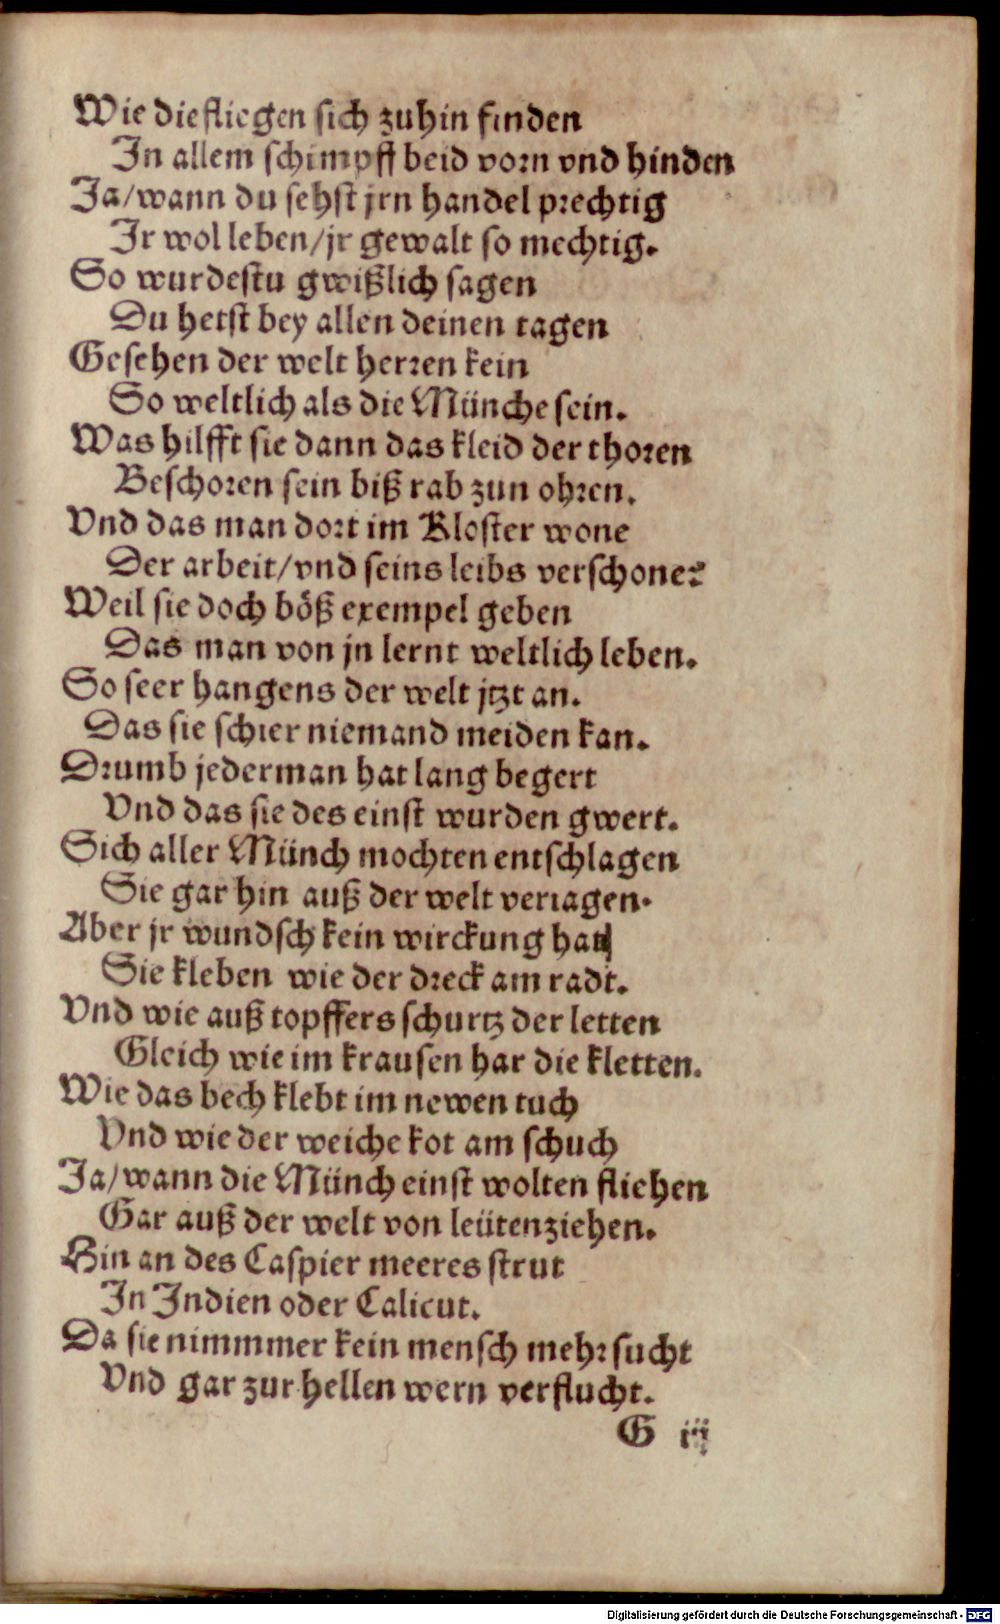 Wie die fliegen sich zuhin finden
In allem schimpff beid vorn vnd hinden
Ja/wann du sehst jrn handel prechtig
Jr wol leben/jr gewalt so mechtig.
So wurdestu gwißlich sagen
Du hetst bey allen deinen tagen
Gesehen der welt herren kein
So weltlich als die Münche sein.
Was hilfft sie dann das kleid der thoren
Beschoren sein biß rab zun ohren.
Vnd das man dort im Kloster wone
Der arbeit/vnd seins leibs verschone?
Weil sie doch böß exempel geben
Das man von jn lernt weltlich leben.
So seer hangens der welt jtzt an.
Das sie schier niemand meiden kan.
Drumb jederman hat lang begert
Vnd das sie des einst wurden gwert.
Sich aller Münch mochten entschlagen
Sie gar hin auß der welt veriagen.
Aber jr wundsch kein wirckung hat
Sie kleben wie der dreck am radt.
Vnd wie auß topffers schurtz der letten
Gleich wie im krausen har die kletten.
Wie das bech klebt im newen tuch
Vnd wie der weiche kot am schuch
Ja/wann die Münch einst wolten fliehen
Gar auß der welt von leüten ziehen.
Hin an des Caspier meeres strut
In Indien oder Calicut.
Da sie nimmmer kein mensch mehr sucht
Vnd gar zur hellen wern verflucht.
G iij
Digitalisierung gefördert durch die Deutsche Forschungsgemeinschaft - DFG